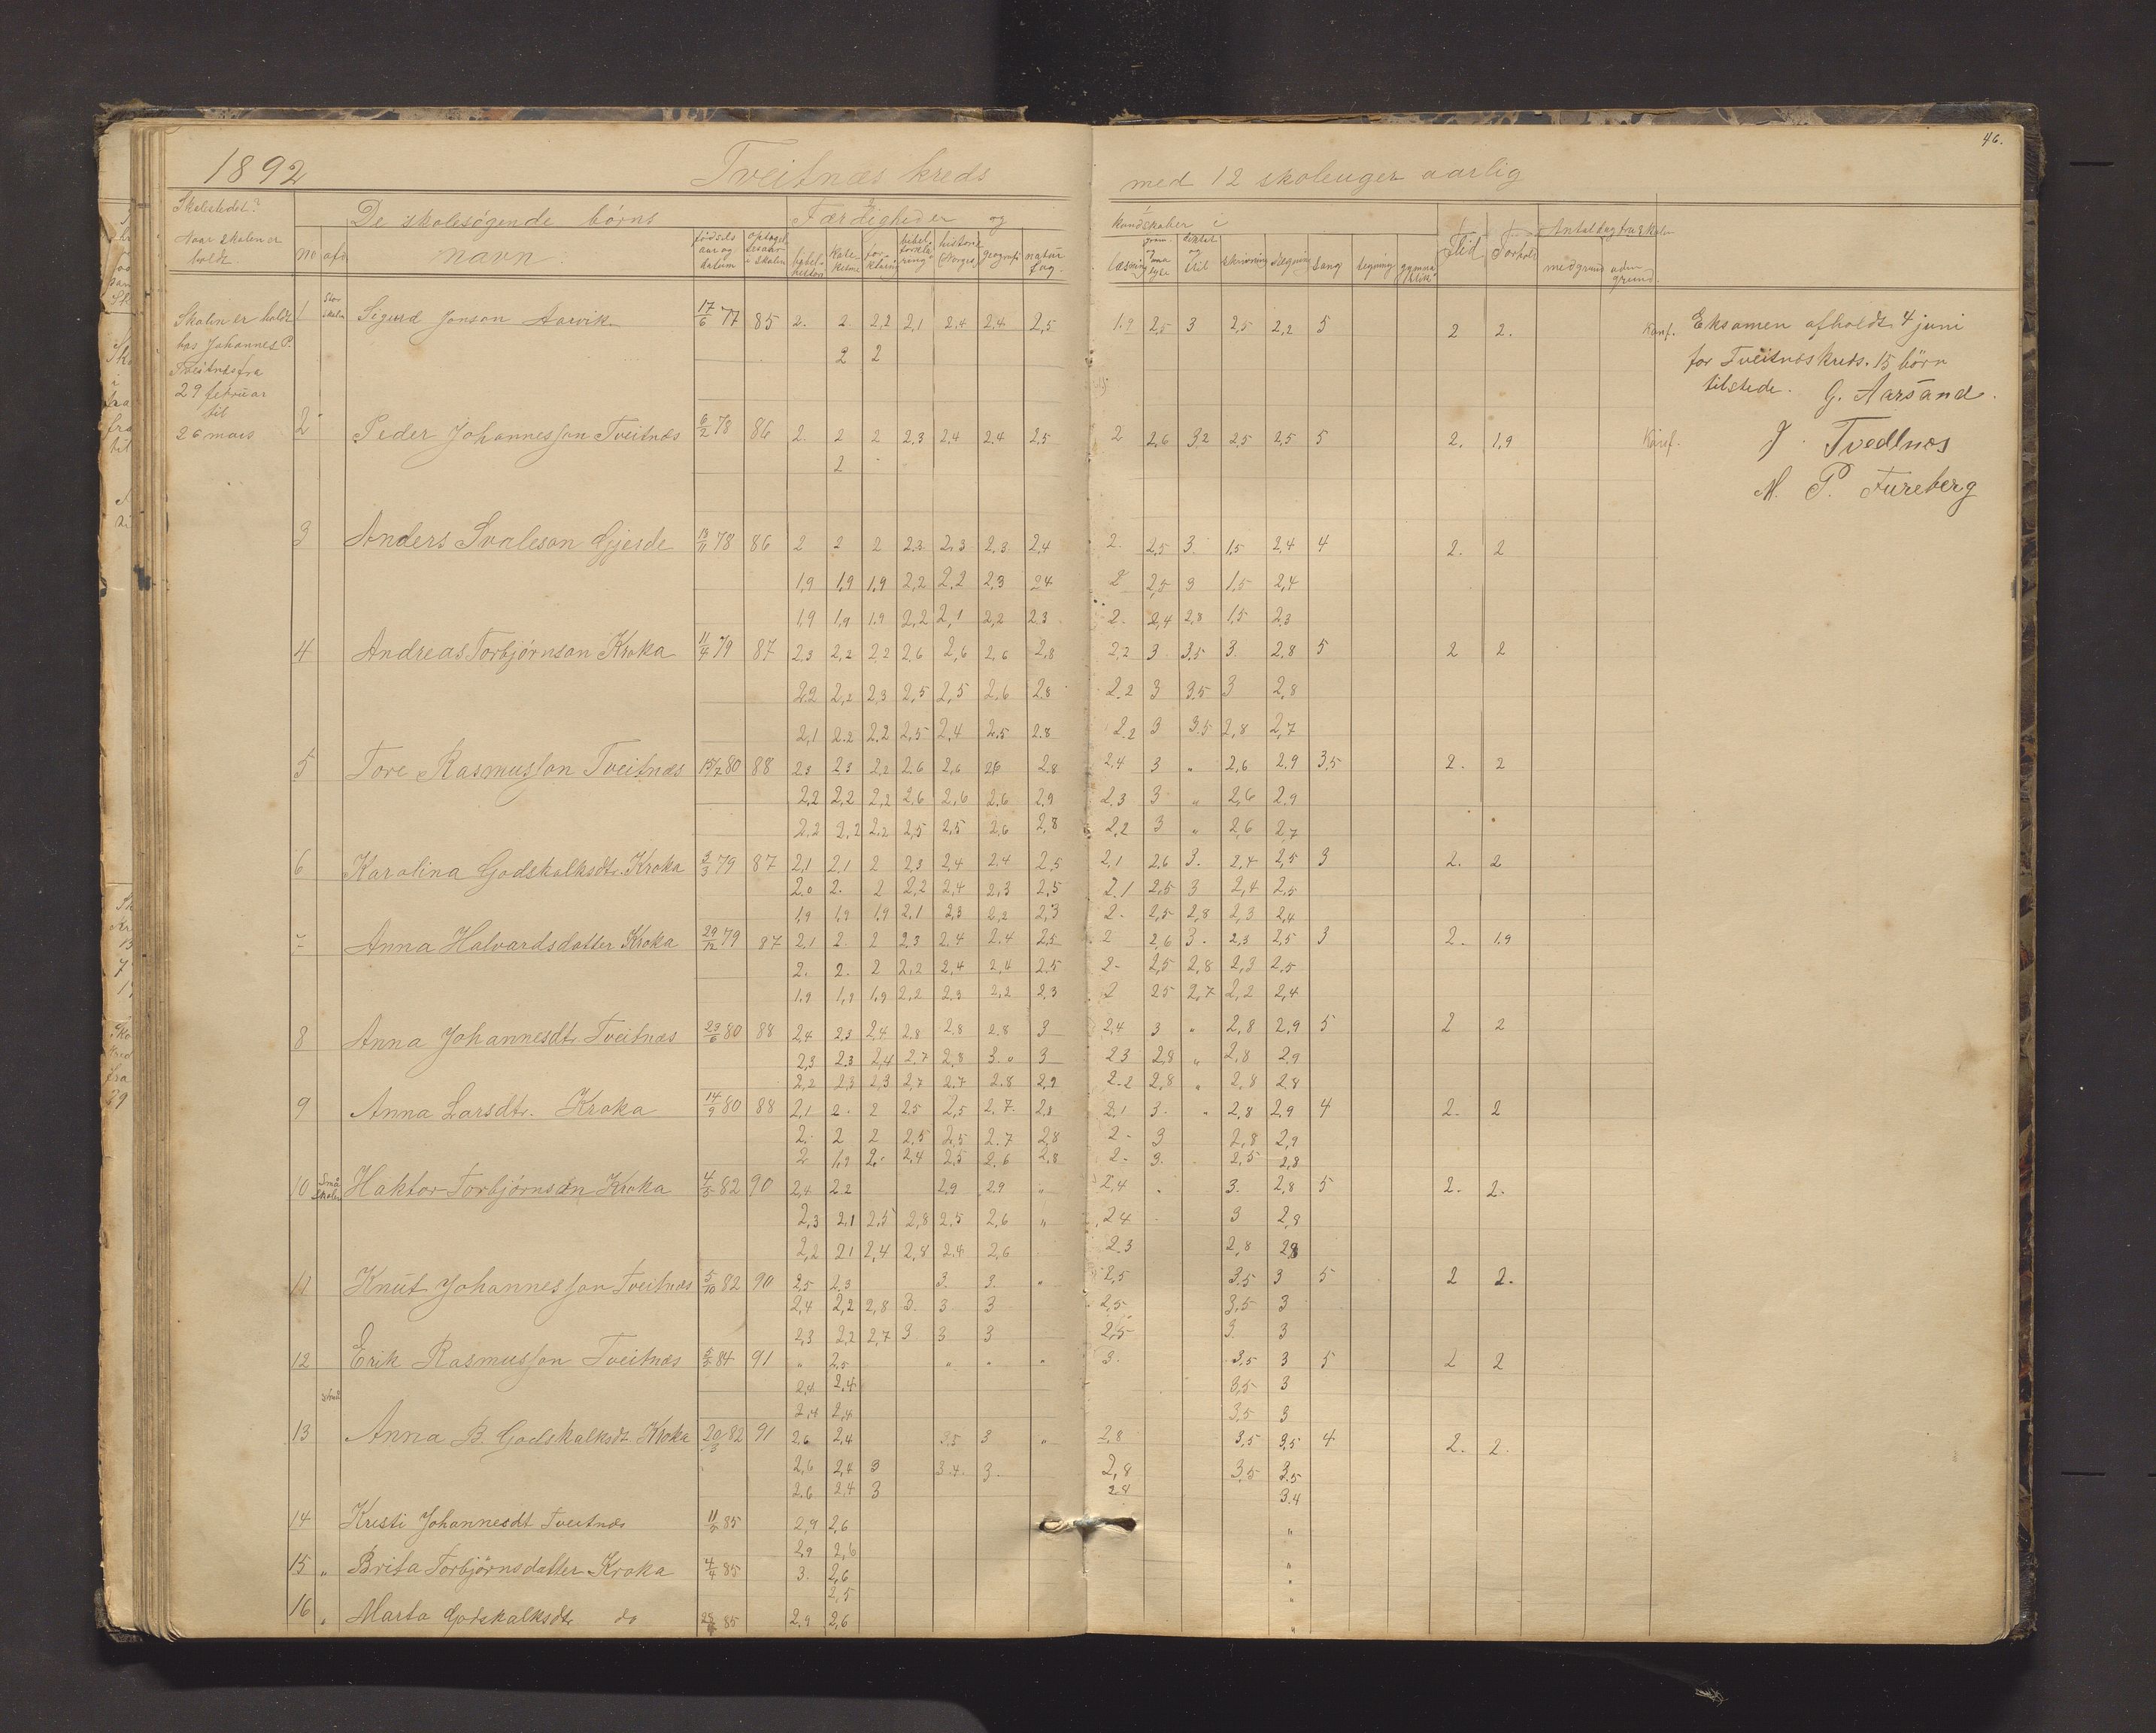 46.
1892 Tveitnæs kreds med 12 skoleuger aarlig
Skolestedet?
Naar skolen er
holdt.
De skolesøgende børns Færdigheder og kundskaber i
no afd. navn: fødsels aar og datum optagelsesaar i skolen bibelhistorie katekisme forklaring bibelforklaring historie (Norges) geografi naturfag læsning diktat og stil skrivning regning sang tegning gymnastik Flid Forhold
Antal dag fra skolen
med grund uden grund.
Skolen er holdt
hos Johannes P.
Tveitnæs fra
29 februar
til
26 mars
1 Stor skolen Sigurd Jonson Aarvik 17/6 77 85 2. 2. 2,2 2,1 2,4 2,4 2,5 1.9 2,5 3 2,5 2,2 5 2 2. Konf.
2 2
2 Peder Johannesson Tveitnæs 6/2 78 86 2. 2 2 2.3 2.4 2.4 2.5 2 2,6 3.2 2.5 2,5 5 2. 1,9 Konf.
2
3 Anders Svaleson Gjerde 13/11 78 86 2 2 2 2.3 2,3 2,3 2,4 2. 2,5 3. 1,5 2,4 4 2. 2
1,9 1,9 1,9 2,2 2,2 2,3 2.4 2 2,5 3 1,5 2,4
1,9 1,9 1.9 2,2 2,1 2,2 2.3 2. 2,4 2,8 1,5 2,3
4 Andreas Torbjørnson Kroka 11/4 79 87 2,3 2,2 2,2 2,6 2,6 2,6 2,8 2,2 3 3.5 3. 2,8 5 2 2
2.2 2,2 2,3 2,5 2,5 2.6 2.8 2.2 3 3.5 3 2,8
2,1 2.2 2.2 2,5 2,4 2.5 2.8 2.2 3 3.5 2,8 2,7
5 Tore Rasmusson Tveitnæs 15/7 80 88 2.3 2.3 2,2 2.6 2,6 2.6 2.8 2.4 3 " 2,6 2.9 3,5 2. 2
2,2 2,2 2,2 2,6 2,6 2,6 2,9 2.3 3 " 2,6 2.9
2,2 2,2 2,2 2,5 2,5 2,6 2,8 2,2 3 " 2,6 2,7
6 Karolina Godskalksdtr. Kroka 3/3 79 87 2,1 2.1 2 2,3 2,4 2.4 2,5 2,1 2,6 3. 2,4 2,5 3 2. 2
2.0 2. 2 2,2 2,4 2,3 2,5 2.1 2,5 3 2,4 2,5
1,9 1,9 1,9 2,1 2,3 2,2 2,3 2. 2,5 2,8 2,3 2,4
Anna Halvardsdatter Kroka 29/12 79 87 2,1 2. 2 2,3 2,4 2.4 2,5 2 2,6 3. 2,3 2,5 3 2. 1.9
2. 2. 2 2,2 2,4 2,4 2.5 2. 2,5 2,8 2,3 2,5
1,9 1,9 1,9 2,2 2,3 2,2 2,3 2 2,5 2,7 2,2 2,4
8 Anna Johannesdtr Tveitnæs 29/6 80 88 2,4 2,3 2,4 2,8 2,8 2.8 3 2,4 3 " 2,8 2,9 5 2 2
2,3 2.3 2,4 2.7 2,8 3.0 3 2.3 2,8 " 2,8 2,9
2,2 2,3 2,3 2,7 2.7 2.8 2,9 2.2 2,8 " 2,8 2,8
9 Anna Larsdtr. Kroka 14/9 80 88 2,1 2. 2 2.5 2,5 2.7. 2,8 2,1 3. " 2,8 2,9 4 2. 2
2. 2 2 2,5 2,5 2.7 2,8 2. 3 2,8 2,9
2 1,9 2. 2,4 2,5 2,6 2,8 2. 3. 2,5 2,8
10 Små skolen Haktor Torbjørnson Kroka 4/3 82 90 2,4 2.2 2,9 2.9 " 2,4 3. 2,8 5 2. 2.
2,3 2,1 2,5 2,8 2.5 2,6 " 2.4 3 2,8
2,2 2,1 2,4 2,8 2.4 2,6 2.3 2,8 2,8
11 Knut Johannesson Tveitnæs 5/10 82 90 2,5 2,3 3. 3. " 2,5 3.5 3 5 2 2.
2,4 2,2 2,8 3. 3 3 2,5 3,5 3
2,3 2,2 2,7 3 3 3 2,5 3. 3
12 Erik Rasmusson Tveitnæs 84 91 " 2,5 " " " 3. 3,5 3 5 2 2
2,4 2,4 3,5 3
2,4 2,4 3,5 3
13 Anna B. Godskalksdt. Kroka 20/3 82 91 2,6 2,4 3,5 3 " 2,8 3,5 3,5 4 2. 2.
2,6 2,4 3 3.4. 3. 2,8 3,5 3.5
2.6 2.4 3 2.8 3.4
14 Kristi Johannesdt Tveitnæs 85 2,9 2,6 "
2,9 2,6
15 " Brita Torbjørnsdatter Kroka 4/4 85 3. 2,6 "
2,5
16 " Marta Godskalksdtr do 85 2.9 2,6 "
Eksamen afholdt 4 juni
for Tveitnæs kreds. 15 børn
tilstede. G. Aarsand.
J. Tvedtnæs
M. P. Fureberg